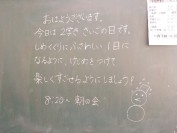 おはようございます。
今日は2学き さいごの日です。
しめくくりにふさわしい 1日に
なるように、けじめをつけて
楽しくすごせるようにしましょう!
8:20〜 朝の会